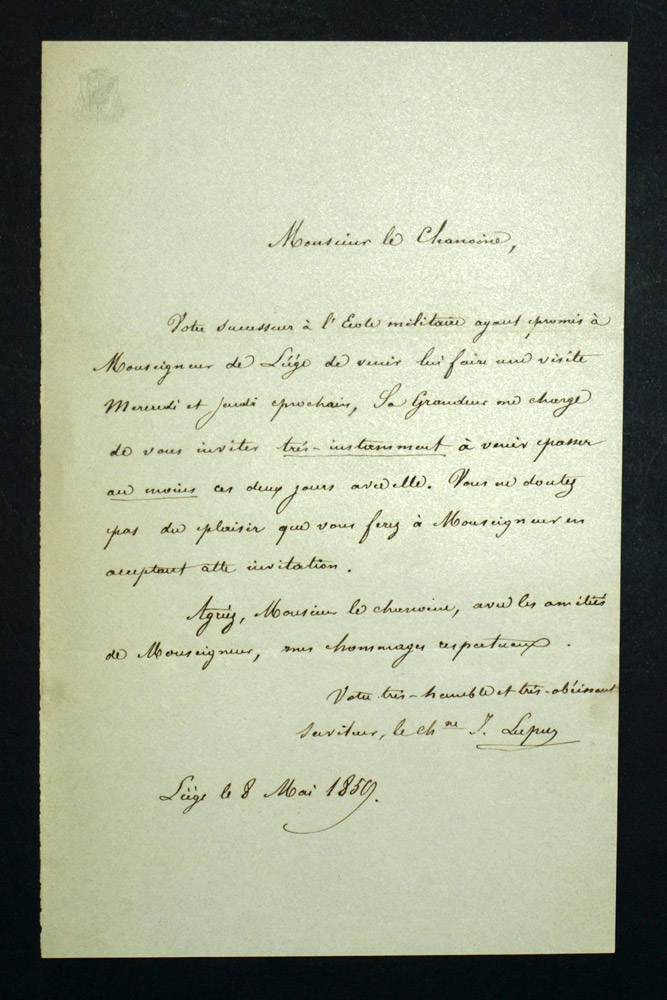 Monsieur le Chanoine,
Votre successeur à l'Ecole militaire ayant promis à
Monseigneur de Liége de venir lui faire une visite
Mercredi et Jeudi prochain, Sa Grandeur me charge
de vous inviter très-instamment à venir passer
au moins ces deux jours avec elle. Vous ne doutez
pas du plaisir que vous ferez à Monseigneur en
acceptant cette invitation.
Agréez, Monsieur le chanoine, avec les amitiés
de Monseigneur, mes hommages respectueux.
Votre très-humble et très-obéissant
serviteur, le chne J.
Liége le 8 Mai 1859.